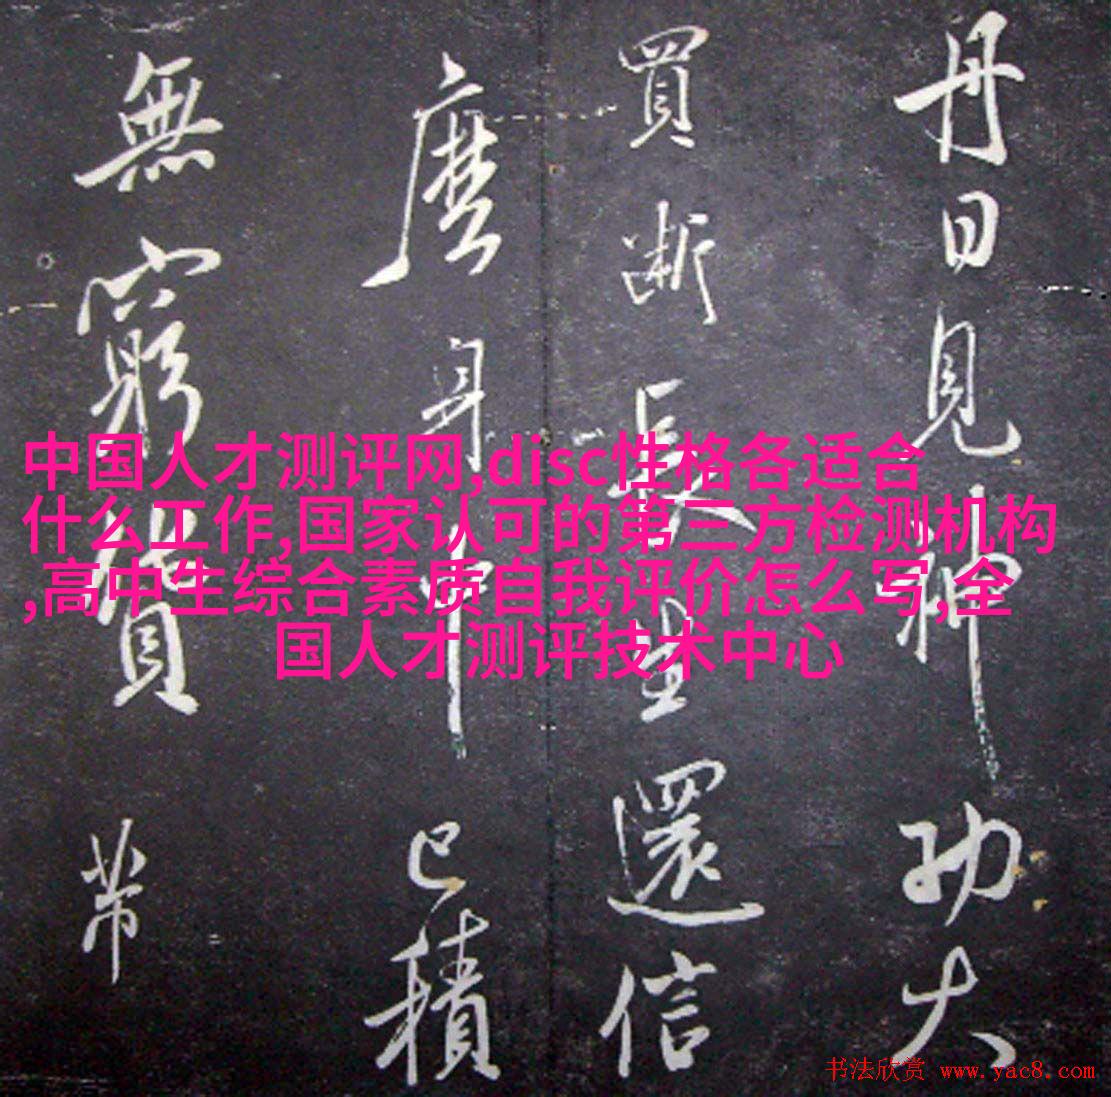 丹日見神功大
買斷長生還信
麼身中已積
無窮貨帶
中国人才测评网,disc性格各适合
什么工作,国家认可的第三方检测机构
,高中生综合素质自我评价怎么写,全
国人才测评技术中心
书法欣赏 www.yac8.com